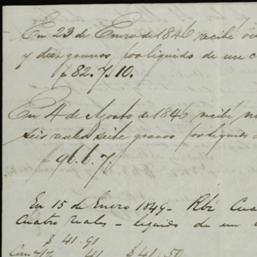 En 23 de Enero de 1846 recibí
y diez granos por liquido de un
82. 7. 10.
En 4 de Agosto de 1846 recibí
seis reales siete granos por liquido
96. 6. 7.
En 15 de Enero 1849 - Rbi Cua
Cuatro reales - liquido de un
$ 41.91
41 $ 41.50